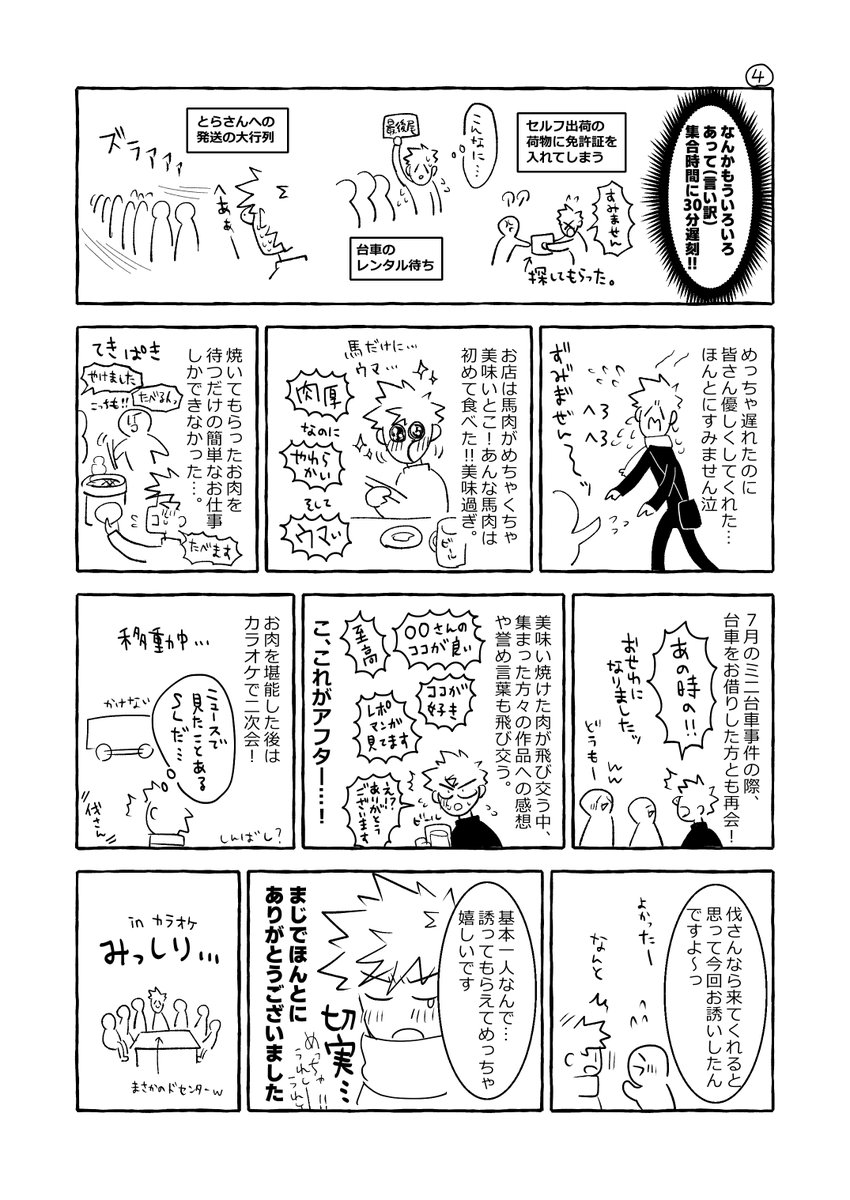 ④
なんかもういろいろ
あって(言い訳)
集合時間に30分遅刻!!
セルフ出荷の
荷物に免許証を
入れてしまう
すみません
探してもらった。
こんなに…
最後尾
台車の
レンタル待ち
とらさんへの
発送の大行列
ズラァァァ
へあぁー
めっちゃ遅れたのに
皆さん優しくしてくれた…
ほんとにすみません泣
ずみぎぜん〜
へろ
へろ
お店は馬肉がめちゃくちゃ
美味いとこ!あんな馬肉は
初めて食べた!!美味過ぎ。
馬だけに…
ウマ…
肉厚
なのに
やわら
かい
そして
ウマい
ビール
焼いてもらったお肉を
待つだけの簡単なお仕事
しかできなかった…。
てきぱき
やけました
こっちも!!
たべるんっ
たべます
7月のミニ台車事件の際、
台車をお借りした方とも再会!
あの時の!!
おせわに
なりましたッ
どうもー
美味い焼けた肉が飛び交う中、
集まった方々の作品への感想
や誉め言葉も飛び交う。
〇〇さんの
ココが良い
至高
ココが
好き
レポ
マンガ
見てます
え!?
ありがとう
ございます
ビール
こ、これがアフター…!
お肉を堪能した後は
カラオケで二次会!
移動中…
かけない
ニュースで
見たことある
SLだ…
伐さん
しんばし?
伐さんなら来てくれると
思って今回お誘いしたん
ですよ〜っ
よかったー
なんと
基本一人なんで…
誘ってもらえてめっちゃ
嬉しいです
切実…
めっちゃ
うれしい
まじでほんとに
ありがとうございました
in カラオケ
みっしり…
まさかのドセンターw